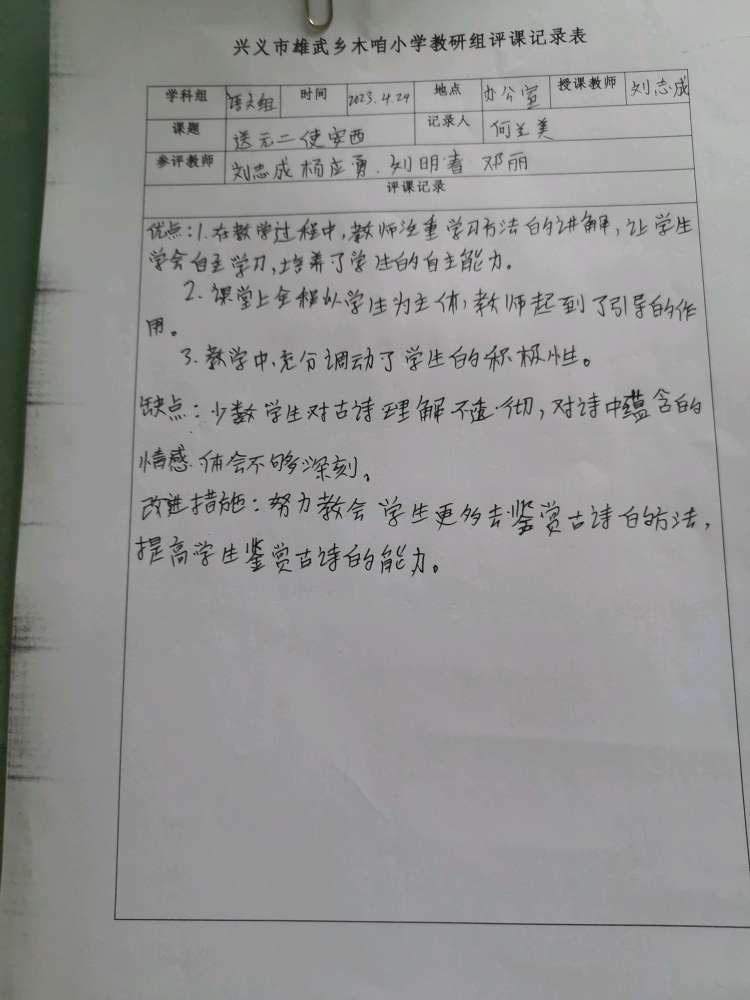 兴义市雄武乡木咱小学教研组评课记录表
学科组 语文组 时间 2023.4.24 地点 办公室 授课教师 刘志成
课题 送元二使安西 记录人 何兰美
参评教师 刘志成 杨应勇. 刘明春 邓丽
评课记录
优点:1.在教学过程中,教师注重学习方法的讲解,让学生
学会自主学习,培养了学生的自主能力。
2.课堂上全程以学生为主体,教师起到了引导的作
用。
3.教学中,充分调动了学生的积极性。
缺点:少数学生对古诗理解不透彻,对诗中蕴含的
情感体会不够深刻。
改进措施:努力教会学生更多去鉴赏古诗的方法,
提高学生鉴赏古诗的能力。